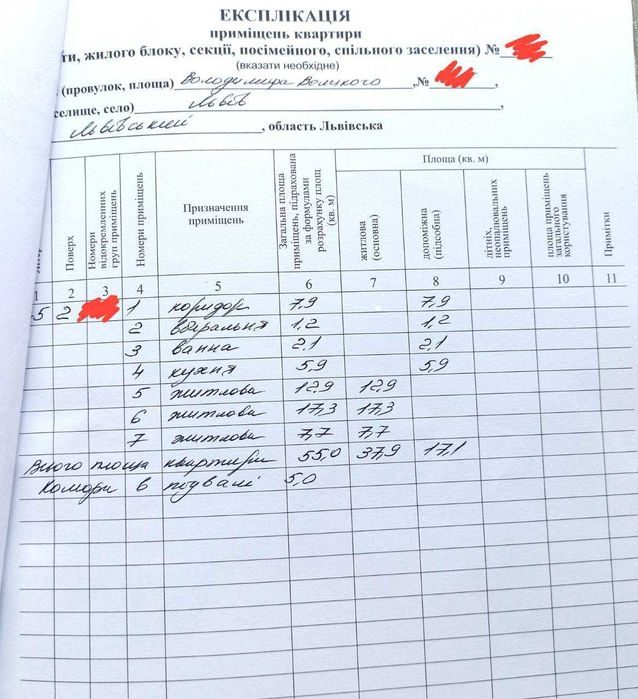 ЕКСПЛІКАЦІЯ
приміщень квартири
ти, жилого блоку, секції, посімейного, спільного заселення) №
(вказати необхідне)
(провулок, площа) Володимира Великого ,№ ,
селище, село) Львів ,
Львівський , область Львівська
Поверх
Номери відокремленних груп приміщень
Номери приміщень
Призначення приміщень
Загальна площа приміщень, підрахована за формулами розрахунку площ (кв. м)
Площа (кв. м)
житлова (основна)
допоміжна (підсобна)
літніх, неопалювальних приміщень
площа приміщень загального користування
Примітки
1 2 3 4 5 6 7 8 9 10 11
5 2 1 коридор 7,9 7,9
2 вбиральня 1,2 1,2
3 ванна 2,1 2,1
4 кухня 5,9 5,9
5 житлова 12,9 12,9
6 житлова 17,3 17,3
7 житлова 7,7 7,7
Всього площа квартири 55,0 37,9 17,1
Комори в подвалі 5,0